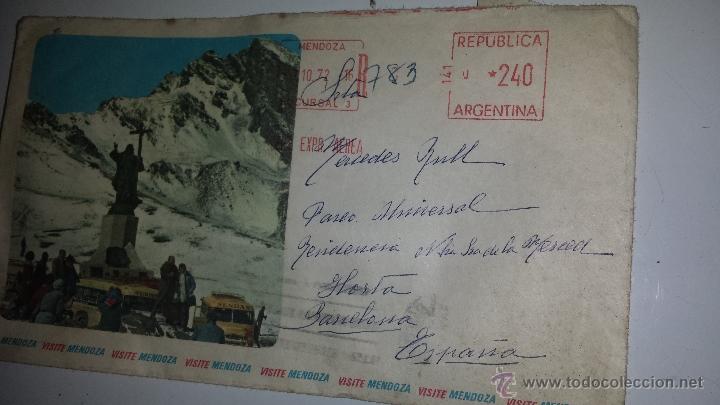 MENDOZA
10.72 16
CURSAL 3
R
783
EXPR AEREA
REPUBLICA
141 U *240
ARGENTINA
Mercedes Rull
Paseo Universal
Residencia Ntra Sra de la Merced
Horta
Barcelona
España
MENDOZA VISITE MENDOZA VISITE MENDOZA VISITE MENDOZA VISITE MENDOZA VISITE MENDOZA VISITE MENDOZA VISITE
© todocoleccion.net